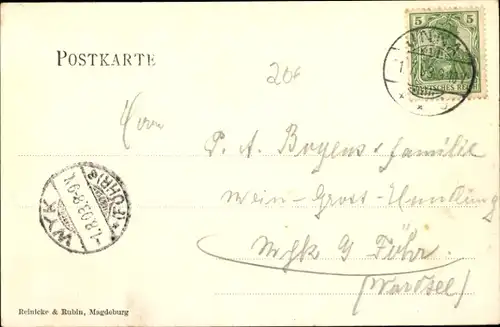 POSTKARTE
5 5
DEUTSCHES REICH
20€
Herrn
P. A. Boyens & Familie
Wein-Gross-Handlung
Wyk a/ Föhr
(Nordsee)
WYK
*(FÖHR)*
-1.8.03.8-9V.
Reinicke & Rubin, Magdeburg